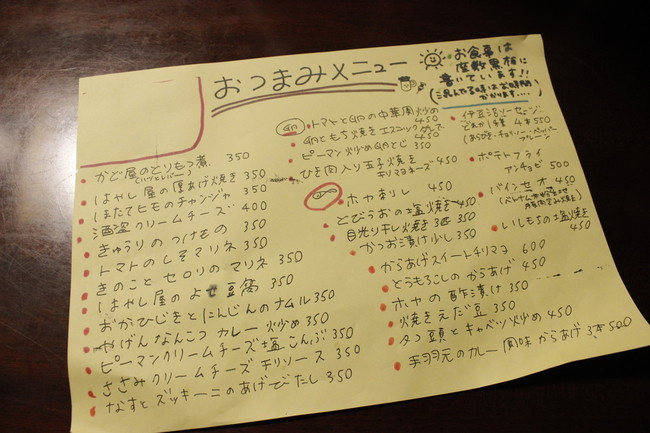 おつまみメニュー
お食事は
座敷黒板に
書いています!!
(混んでる時はお時間
かかります....)
かど屋のとりもつ煮 350
(ハツとレバー)
はやし屋の厚あげ焼き 350
ほたてヒモのチャンジャ 350
酒盗クリームチーズ 400
きゅうりのつけもの 350
トマトのしそマリネ 350
きのことセロリのマリネ 350
はやし屋のよせ豆腐 350
おかひじきとにんじんのナムル 350
やげんなんこつカレー炒め 350
ピーマンクリームチーズ塩こんぶ 350
ささみクリームチーズチリソース 350
なすとズッキーニのあげびたし 350
卵
トマトと卵の中華風炒め 450
卵ともち焼き エスニック 450
ピーマン炒め卵とじ 350
ひき肉入り玉子焼き
チリマヨネーズ 450
ホヤ刺し 450
とびうおの塩焼き 450
目光り干し焼き 3匹 350
かつお漬け少し 350
からあげスイートチリマヨ 600
とうもろこしのからあげ 450
ホヤの酢漬け 350
焼きえだ豆 350
タコ頭とキャベツ炒め 450
手羽元のカレー風味からあげ 3本 500
伊豆沼ソーセージ
どれか1種 4本 550
(あらびき・チョリソー・ペッパー
プレーン)
ポテトフライ
アンチョビ 500
バインセオ 450
いしもちの塩焼き
450